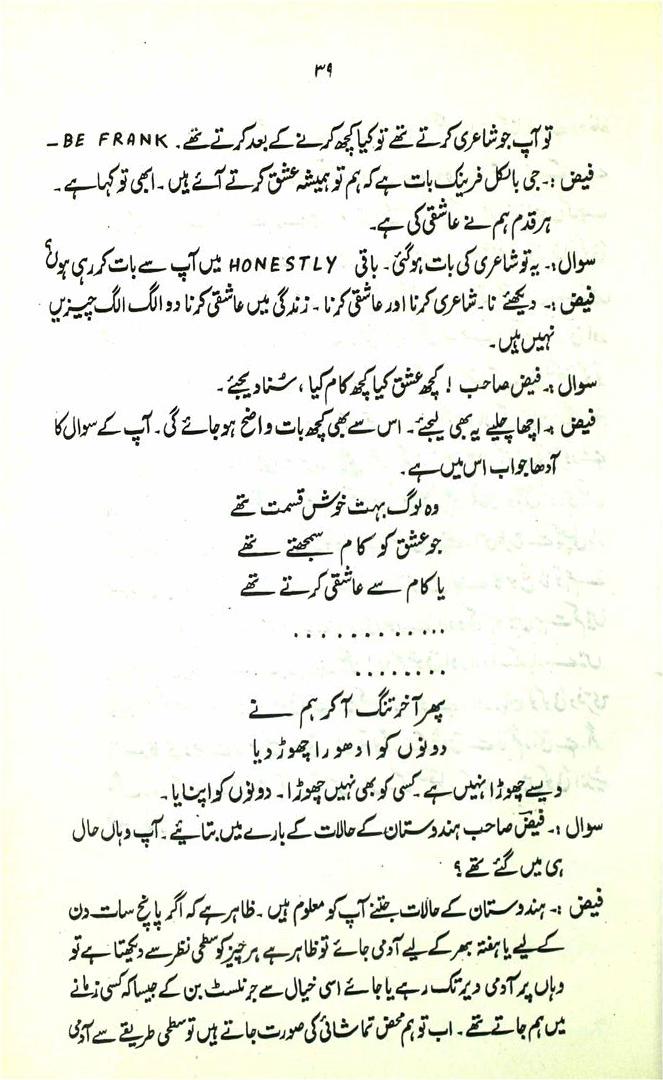 ۳۹
تو آپ جو شاعری کرتے تھے تو کیا کچھ کرنے کے بعد کرتے تھے۔ BE FRANK –
فیض :۔ جی بالکل فرینک بات ہے کہ ہم تو ہمیشہ عشق کرتے آئے ہیں۔ ابھی تو کہا ہے۔
ہر قدم ہم نے عاشقی کی ہے۔
سوال :۔ یہ تو شاعری کی بات ہو گئی۔ باقی HONESTLY میں آپ سے بات کر رہی ہوں؟
فیض :۔ دیکھئے نا۔ شاعری کرنا اور عاشقی کرنا۔ زندگی میں عاشقی کرنا دو الگ الگ چیزیں
نہیں ہیں۔
سوال :۔ فیض صاحب ! کچھ عشق کیا کچھ کام کیا، سُنا دیجئے۔
فیض :۔ اچھا چلیے یہ بھی لیجئے۔ اس سے بھی کچھ بات واضح ہو جائے گی۔ آپ کے سوال کا
آدھا جواب اس میں ہے۔
وہ لوگ بہت خوش قسمت تھے
جو عشق کو کام سمجھتے تھے
یا کام سے عاشقی کرتے تھے
............
........
پھر آخر تنگ آ کر ہم نے
دونوں کو ادھورا چھوڑ دیا
ویسے چھوڑا نہیں ہے۔ کسی کو بھی نہیں چھوڑا۔ دونوں کو اپنایا۔
سوال :۔ فیض صاحب ہندوستان کے حالات کے بارے میں بتائیے۔ آپ وہاں حال
ہی میں گئے تھے؟
فیض :۔ ہندوستان کے حالات جتنے آپ کو معلوم ہیں۔ ظاہر ہے کہ اگر پانچ سات دن
کے لیے یا ہفتہ بھر کے لیے آدمی جائے تو ظاہر ہے ہر چیز کو سطحی نظر سے دیکھتا ہے تو
وہاں پر آدمی دیر تک رہے یا جائے اسی خیال سے جرنلسٹ بن کے جیسا کہ کسی زمانے
میں ہم جاتے تھے۔ اب تو ہم محض تماشائی کی صورت جاتے ہیں تو سطحی طریقے سے آدمی